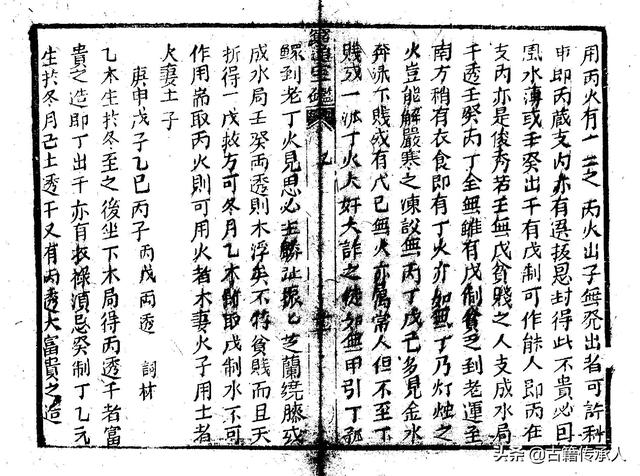 用丙火有一二點丙火出干無癸出者可許科
甲即丙藏支內亦有選拔恩封得此不貴必因
風水薄或壬癸出干有戊制可作能人即丙在
支內亦是俊秀若壬無戊貧賤之人支成水局
干透壬癸丙丁全無雖有戊制貧乏到老運至
南方稍有衣食即有丁火亦如無丁乃灯燭之
火豈能解嚴寒之凍設無丙丁戊己多見金水
奔流下賤或有戊己無火亦屬常人但不至丁
賤或一派丁火大奸大詐之徒如無甲引丁孤
鰥到老丁火見甲必主麟趾振振芝蘭繞膝或
成水局壬癸兩透則木浮矣不特貧賤而且夭
折得一戊救方可冬月乙木雖取戊制水不可
作用專取丙火則可用火者木妻火子用土者
火妻土子
庚申戊子乙巳丙子 丙戊兩透 詞材
乙木生於冬至之後坐下木局得丙透干者富
貴之造即丁出干亦有衣祿須忌癸制丁乙元
生於冬月己土透干又有丙透大富貴之造
頭条 @古籍传承人